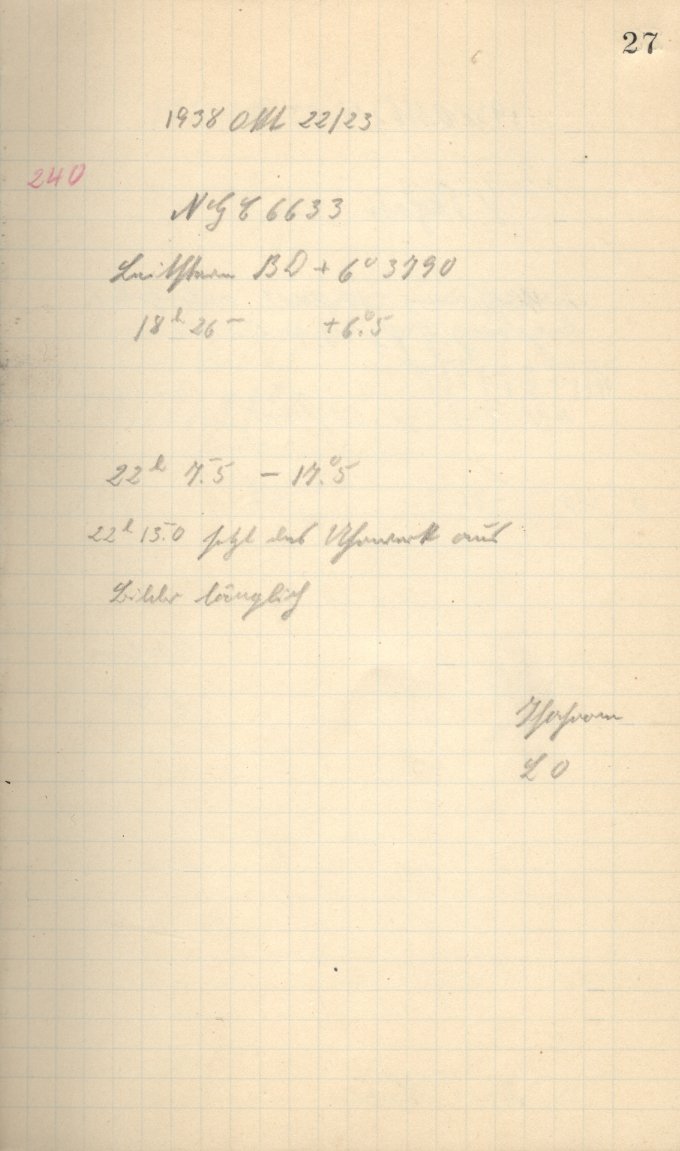 27
1938 Okt 22/23
240
NGC 6633
Leitstern BD + 6° 3790
18ʰ 26ᵐ +6.°5
22ʰ 7.ᵐ5 – 17.°5
22ʰ 15.ᵐ0 setzt das Uhrwerk aus
Bilder länglich
L O